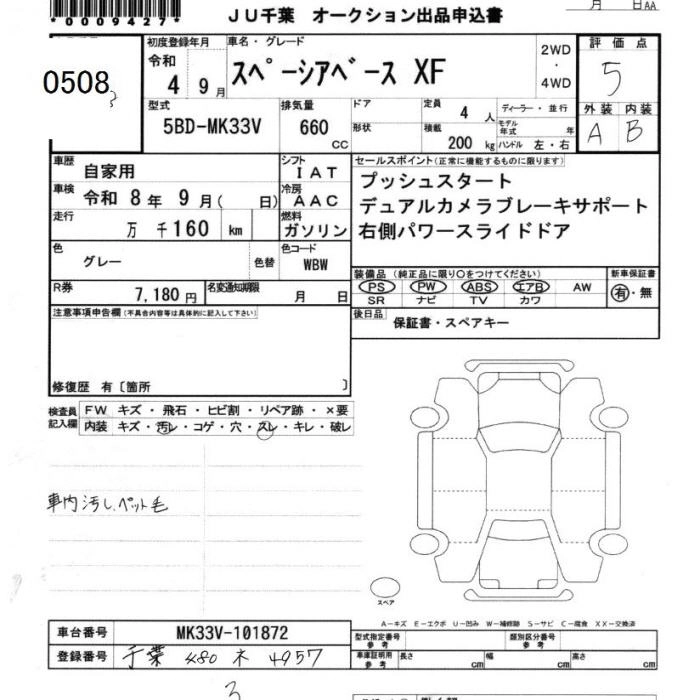 *0009427*
JU千葉 オークション出品申込書
月 日AA
0508
初度登録年月 車名・グレード 2WD 評価点
令和 4 9月 スペーシアベース XF ・ 5
4WD 外装 内装
型式 排気量 ドア 定員 4人 ディーラー・並行 A B
5BD-MK33V 660 CC 形状 積載 200 kg モデル年式 年
ハンドル 左・右
車歴 自家用 シフト IAT セールスポイント(正常に機能するものに限ります)
車検 令和 8年 9月( 日) 冷房 AAC プッシュスタート
走行 万 千160 km 燃料 ガソリン デュアルカメラブレーキサポート
右側パワースライドドア
色 グレー 色替 色コード WBW
装備品(純正品に限り○をつけてください) 新車保証書
PS PW ABS エアB AW 有・無
SR ナビ TV カワ
R券 7,180円 名変通知期限 月 日
後日品 保証書・スペアキー
注意事項申告欄(不具合内容等は具体的に記入して下さい)
修復歴 有〔箇所 〕
検査員記入欄 FW キズ・飛石・ヒビ割・リペア跡・×要
内装 キズ・汚レ・コゲ・穴・スレ・キレ・破レ
車内汚し、ペット毛
スペア
A-キズ E-エクボ U-凹み W-補修跡 S-サビ C-腐食 XX-交換済
車台番号 MK33V-101872 型式指定番号 参考 類別区分番号 参考
登録番号 千葉 480 ネ 4957 車庫証明用 参考 長さ cm 幅 cm 高さ cm
3